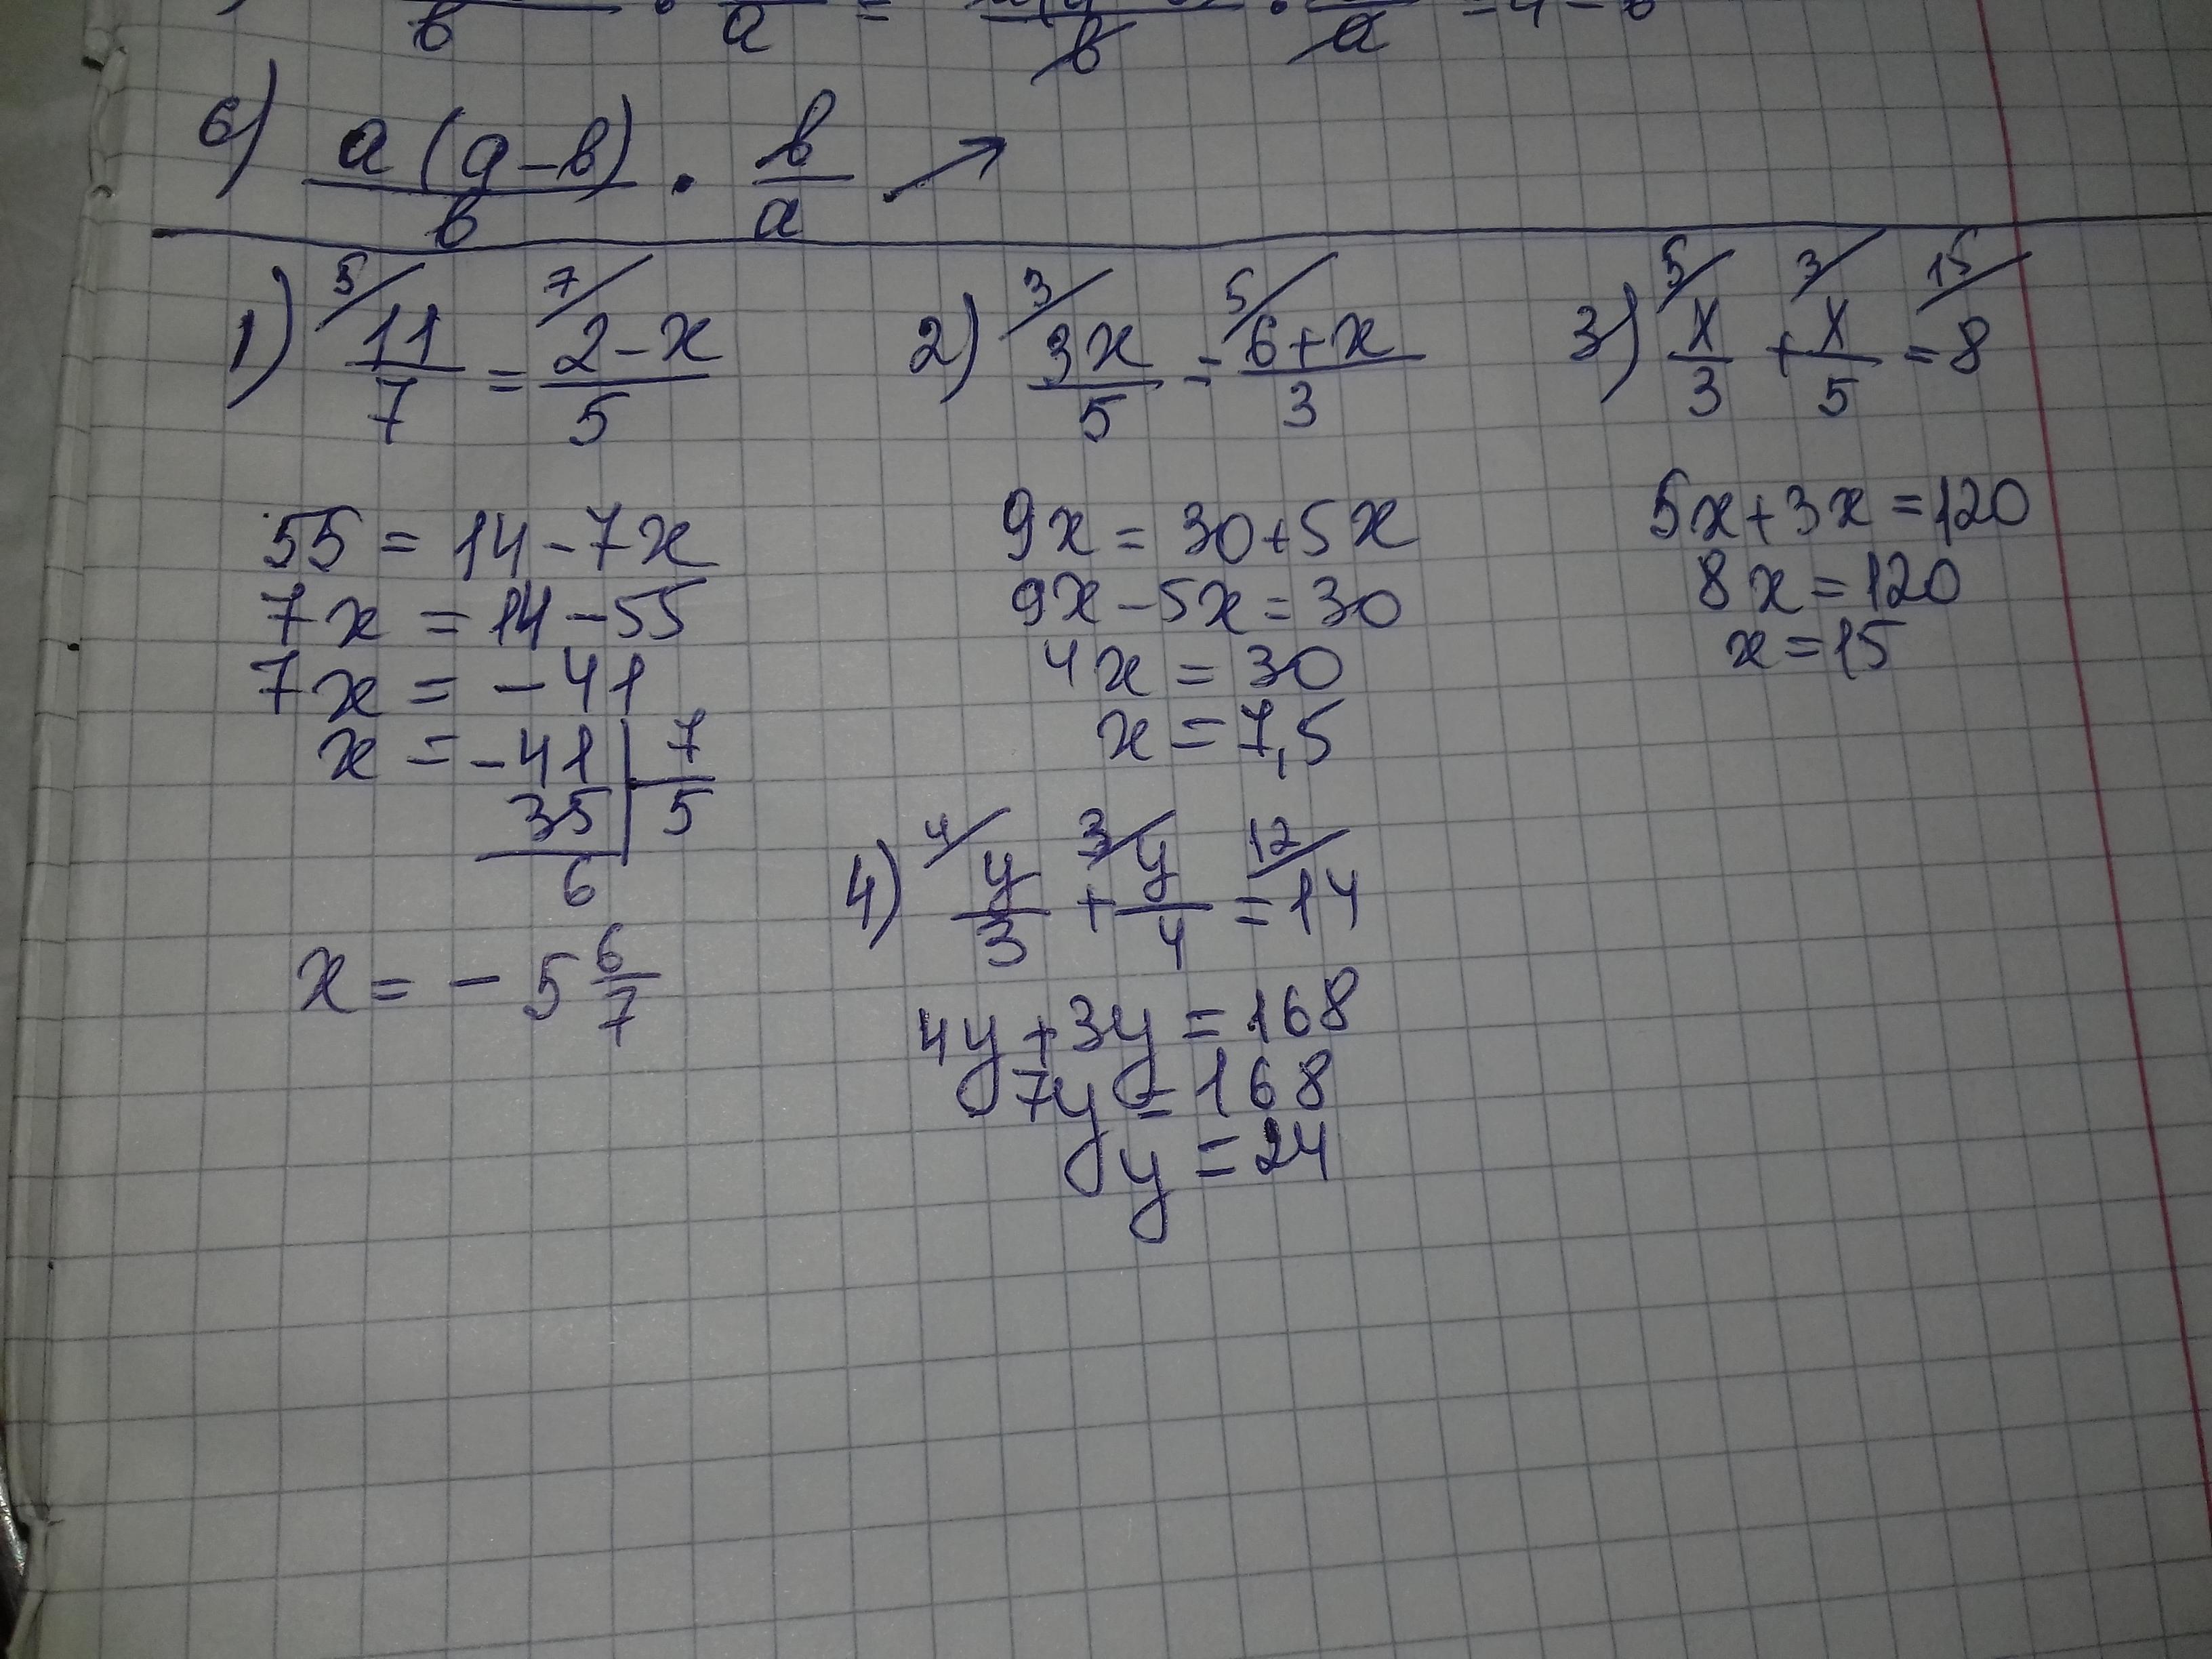 b · a = b · a = 4 - b
6) a(q-b)/b · b/a →
1) 5/ 11/7 = 7/ (2-x)/5
55 = 14 - 7x
7x = 14 - 55
7x = -41
x = -41 | 7
35 | 5
6
x = - 5 6/7
2) 3/ 3x/5 = 5/ (6+x)/3
9x = 30 + 5x
9x - 5x = 30
4x = 30
x = 7,5
3) 5/ x/3 + 3/ x/5 = 15/ 8
5x + 3x = 120
8x = 120
x = 15
4) 4/ y/3 + 3/ y/4 = 12/ 14
4y + 3y = 168
7y = 168
y = 24